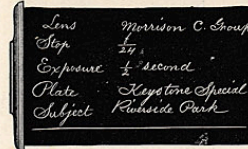 Lens Morrison C. Group
Stop 1/24
Exposure 1/2 second "
Plate Keystone Special
Subject Riverside Park